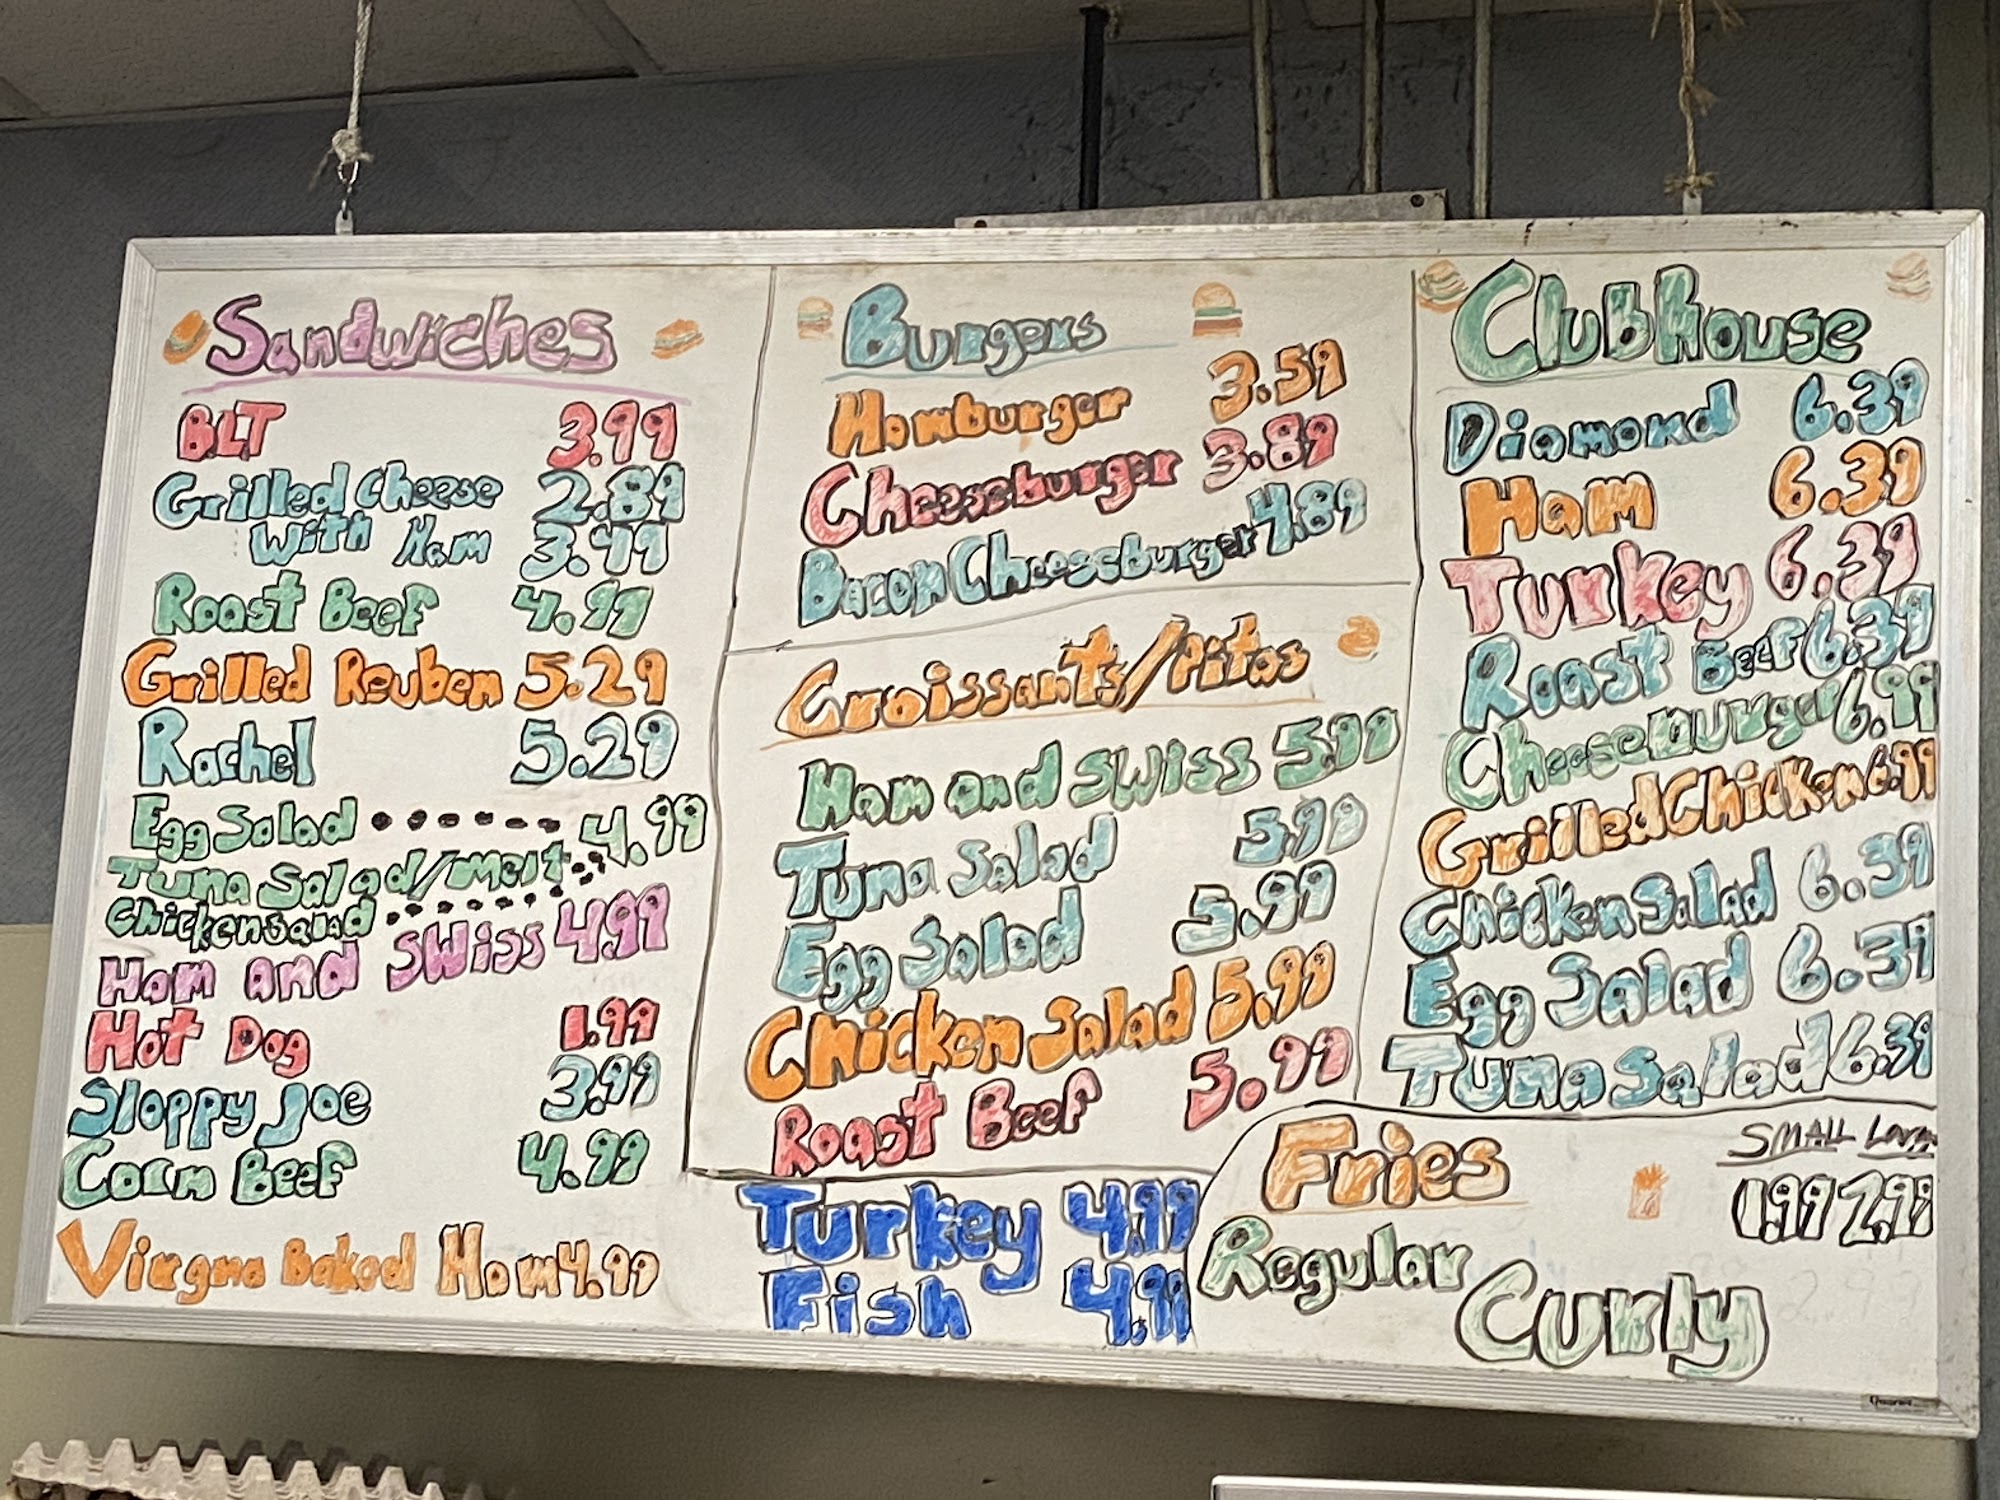 Sandwiches
BLT 3.99
Grilled Cheese 2.89
With Ham 3.49
Roast Beef 4.99
Grilled Reuben 5.29
Rachel 5.29
Egg Salad 4.99
Tuna Salad/Melt
Chicken Salad
Ham and Swiss 4.99
Hot Dog 1.99
Sloppy Joe 3.99
Corn Beef 4.99
Virgina Baked Ham 4.99
Burgers
Hamburger 3.59
Cheeseburger 3.89
Bacon Cheeseburger 4.89
Croissants/Pitas
Ham and Swiss 5.99
Tuna Salad 5.99
Egg Salad 5.99
Chicken Salad 5.99
Roast Beef 5.99
Turkey 4.99
Fish 4.99
Clubhouse
Diamond 6.39
Ham 6.39
Turkey 6.39
Roast Beef 6.39
Cheeseburger 6.99
Grilled Chicken 6.99
Chicken Salad 6.39
Egg Salad 6.39
Tuna Salad 6.39
Fries
SMALL Large
1.99 2.99
Regular
Curly